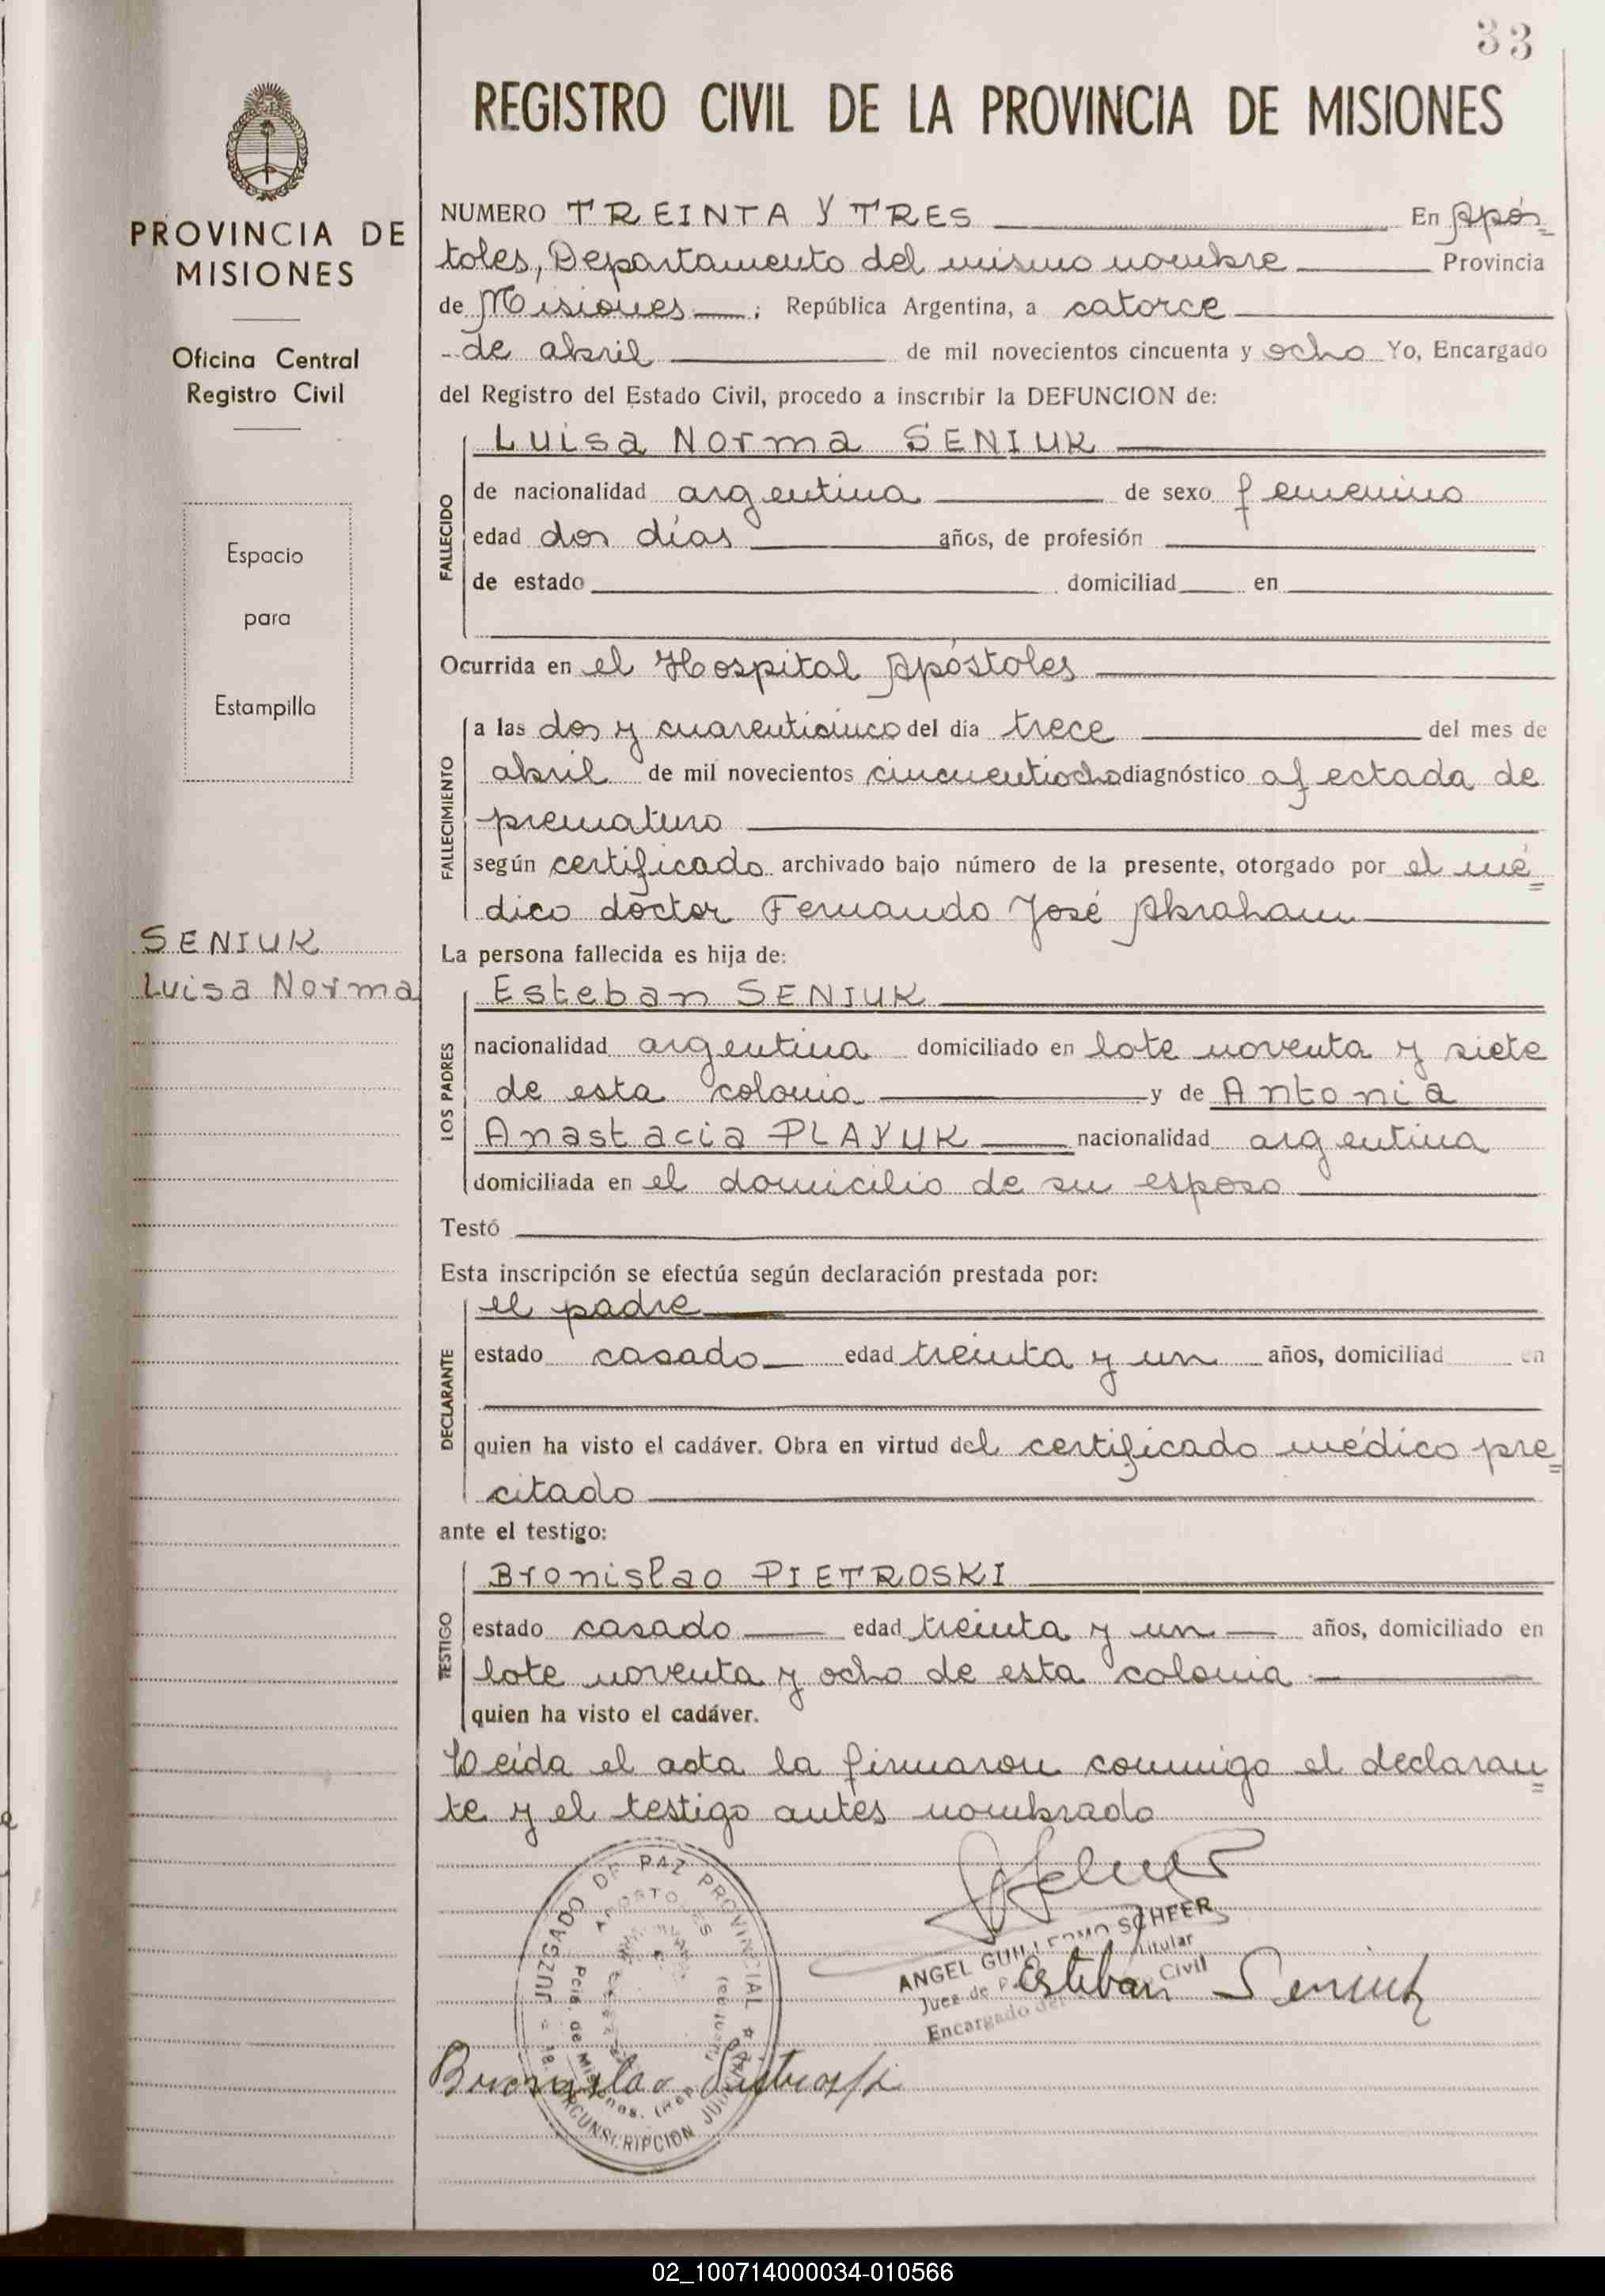 33
REGISTRO CIVIL DE LA PROVINCIA DE MISIONES
PROVINCIA DE
MISIONES
Oficina Central
Registro Civil
Espacio
para
Estampilla
SENIUK
Luisa Norma
NUMERO TREINTA Y TRES En Após=
toles, Departamento del mismo nombre Provincia
de Misiones ; República Argentina, a catorce
de abril de mil novecientos cincuenta y ocho Yo, Encargado
del Registro del Estado Civil, procedo a inscribir la DEFUNCION de:
FALLECIDO
Luisa Norma SENIUK
de nacionalidad argentina de sexo femenino
edad dos días años, de profesión
de estado domiciliad en
Ocurrida en el Hospital Apóstoles
FALLECIMIENTO
a las dos y cuarenticinco del dia trece del mes de
abril de mil novecientos cincuentiocho diagnóstico afectada de
prematuro
según certificado archivado bajo número de la presente, otorgado por el mé=
dico doctor Fernando José Abraham
La persona fallecida es hija de:
LOS PADRES
Esteban SENIUK
nacionalidad argentina domiciliado en lote noventa y siete
de esta colonia y de Antonia
Anastacia PLAYUK nacionalidad argentina
domiciliada en el domicilio de su esposo
Testó
Esta inscripción se efectúa según declaración prestada por:
DECLARANTE
el padre
estado casado edad treinta y un años, domiciliad en
quien ha visto el cadáver. Obra en virtud del certificado médico pre=
citado
ante el testigo:
TESTIGO
Bronislao PIETROSKI
estado casado edad treinta y un años, domiciliado en
lote noventa y ocho de esta colonia
quien ha visto el cadáver.
Leida el acta la firmaron conmigo el declaran=
te y el testigo antes nombrado
JUZGADO DE PAZ PROVINCIAL
APOSTOLES
Pcia. de Misiones.
CIRCUNSCRIPCION
ANGEL GUILLERMO SCHEER
Juez de Titular
Encargado del Civil
Esteban Seniuk
Bronislao Pietroski
02_100714000034-010566